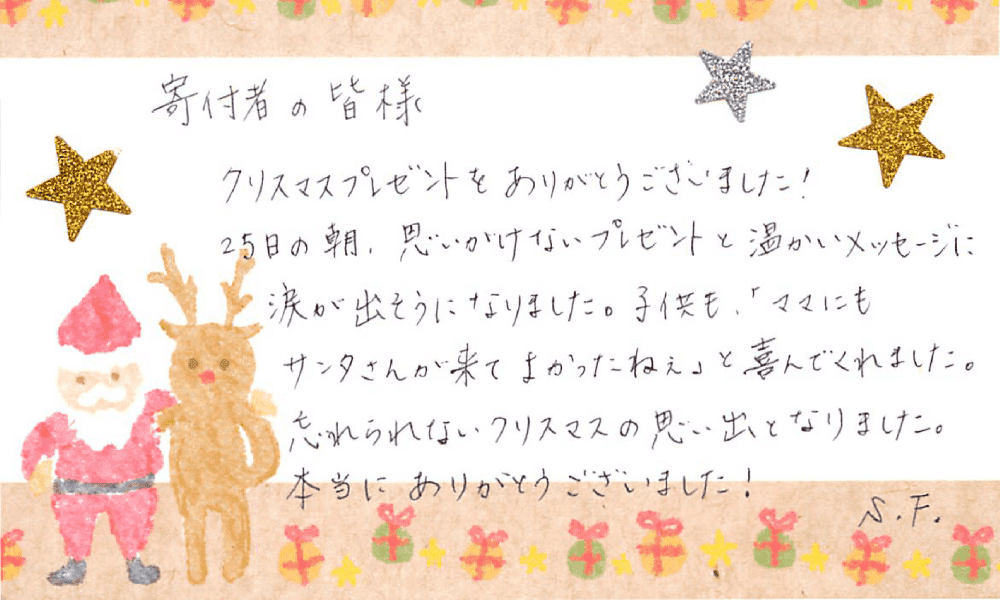 寄付者の皆様
クリスマスプレゼントをありがとうございました！
25日の朝、思いがけないプレゼントと温かいメッセージに
涙が出そうになりました。子供も、「ママにも
サンタさんが来てよかったねぇ」と喜んでくれました。
忘れられないクリスマスの思い出となりました。
本当にありがとうございました！
S.F.